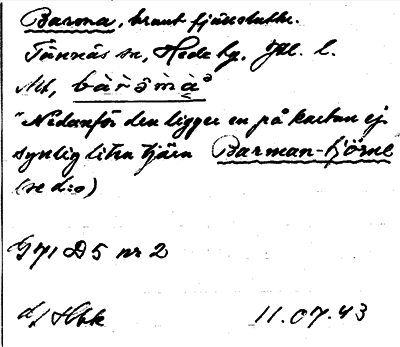 Barma, brant fjällslutt.
Tännäs sn, Hede tg. Jtl. l.
Utt, bàr̀ǝm̀à
"Nedanför den ligger en på kartan ej
synlig liten tjärn Barman-tjörne
(se d:o)
G 71 D5 nr 2
d/ Hbk 11.07.43